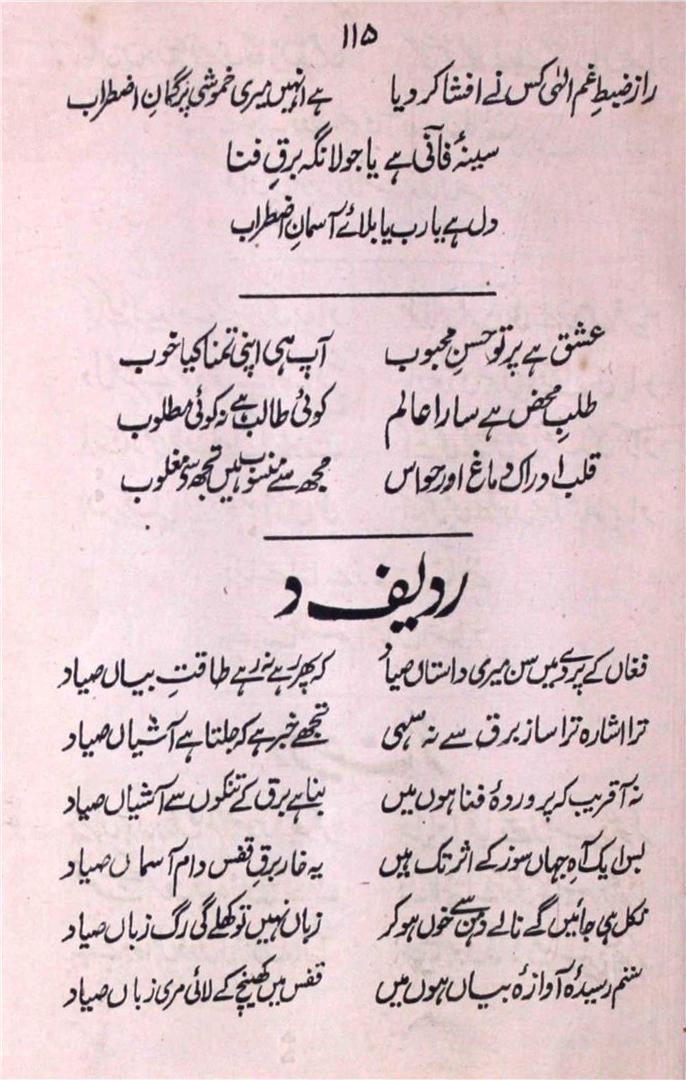 ۱۱۵
راز ضبطِ غم الٰہی کس نے افشا کر دیا ہے انہیں میری خموشی پر گمانِ اضطراب
سینۂ فانی ہے یا جولانگہ برقِ فنا
دل ہے یارب یا بلائے آسمانِ اضطراب
عشق ہے پرتوِ حسنِ محبوب آپ ہی اپنی تمنا کیا خوب
طلبِ محض ہے سارا عالم کوئی طالب ہے نہ کوئی مطلوب
قلب ادراک دماغ اور حواس مجھ سے منسوب ہیں تجھ سے مغلوب
ردیف د
فغاں کے پردے میں سن میری داستاں صیاد کہ پھر رہے نہ رہے طاقتِ بیاں صیاد
ترا اشارہ ترا ساز برق سے نہ سہی تجھے خبر ہے کہ جلتا ہے آشیاں صیاد
نہ آ قریب کہ پروردۂ فنا ہوں میں بنا ہے برق کے تنکوں سے آشیاں صیاد
بس ایک آہِ جہاں سوز کے اثر تک ہیں یہ خار برقِ قفس دام آسماں صیاد
نکل ہی جائیں گے نالے دہن سے خوں ہو کر زباں نہیں تو کھلے گی رگ زباں صیاد
ستم رسیدۂ آوازۂ بیاں ہوں میں قفس میں کھینچ کے لائی مری زباں صیاد